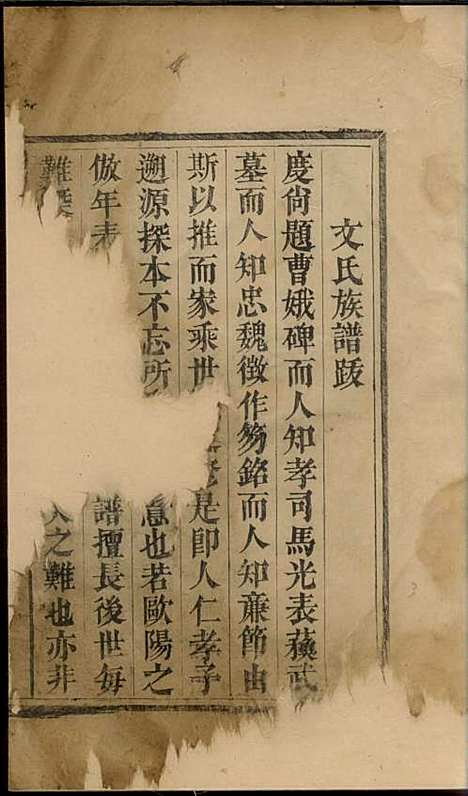 文氏族譜跋
度尙題曹娥碑而人知孝司馬光表蘓武
墓而人知忠魏徵作笏銘而人知亷節由
斯以推而家乘世是卽人仁孝子
遡源探本不忘所也若歐陽之
倣年表譜擅長後世每
難之難也亦非